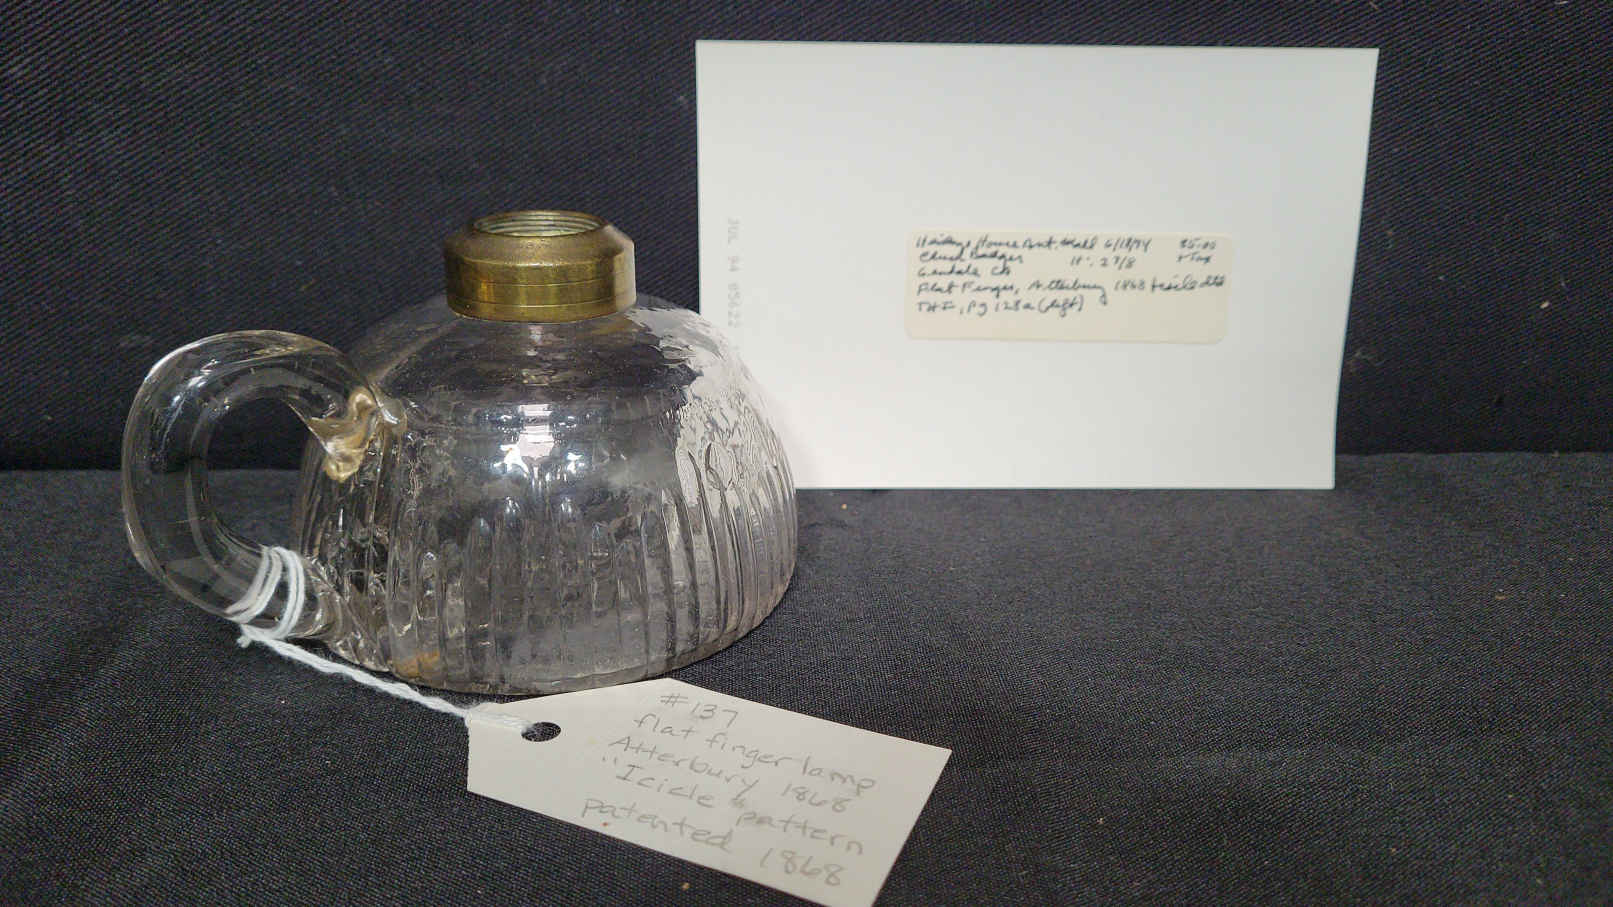 JUL 94 05622
House Ant. Mall 6/18/94 85.00
Chuck Badger 18". 2 7/8 + Tax
Glendale CA
Flat Finger, Atterbury 1868
THI, pg 128a (left)
#137
flat finger lamp
Atterbury 1868
"Icicle" pattern
patented 1868